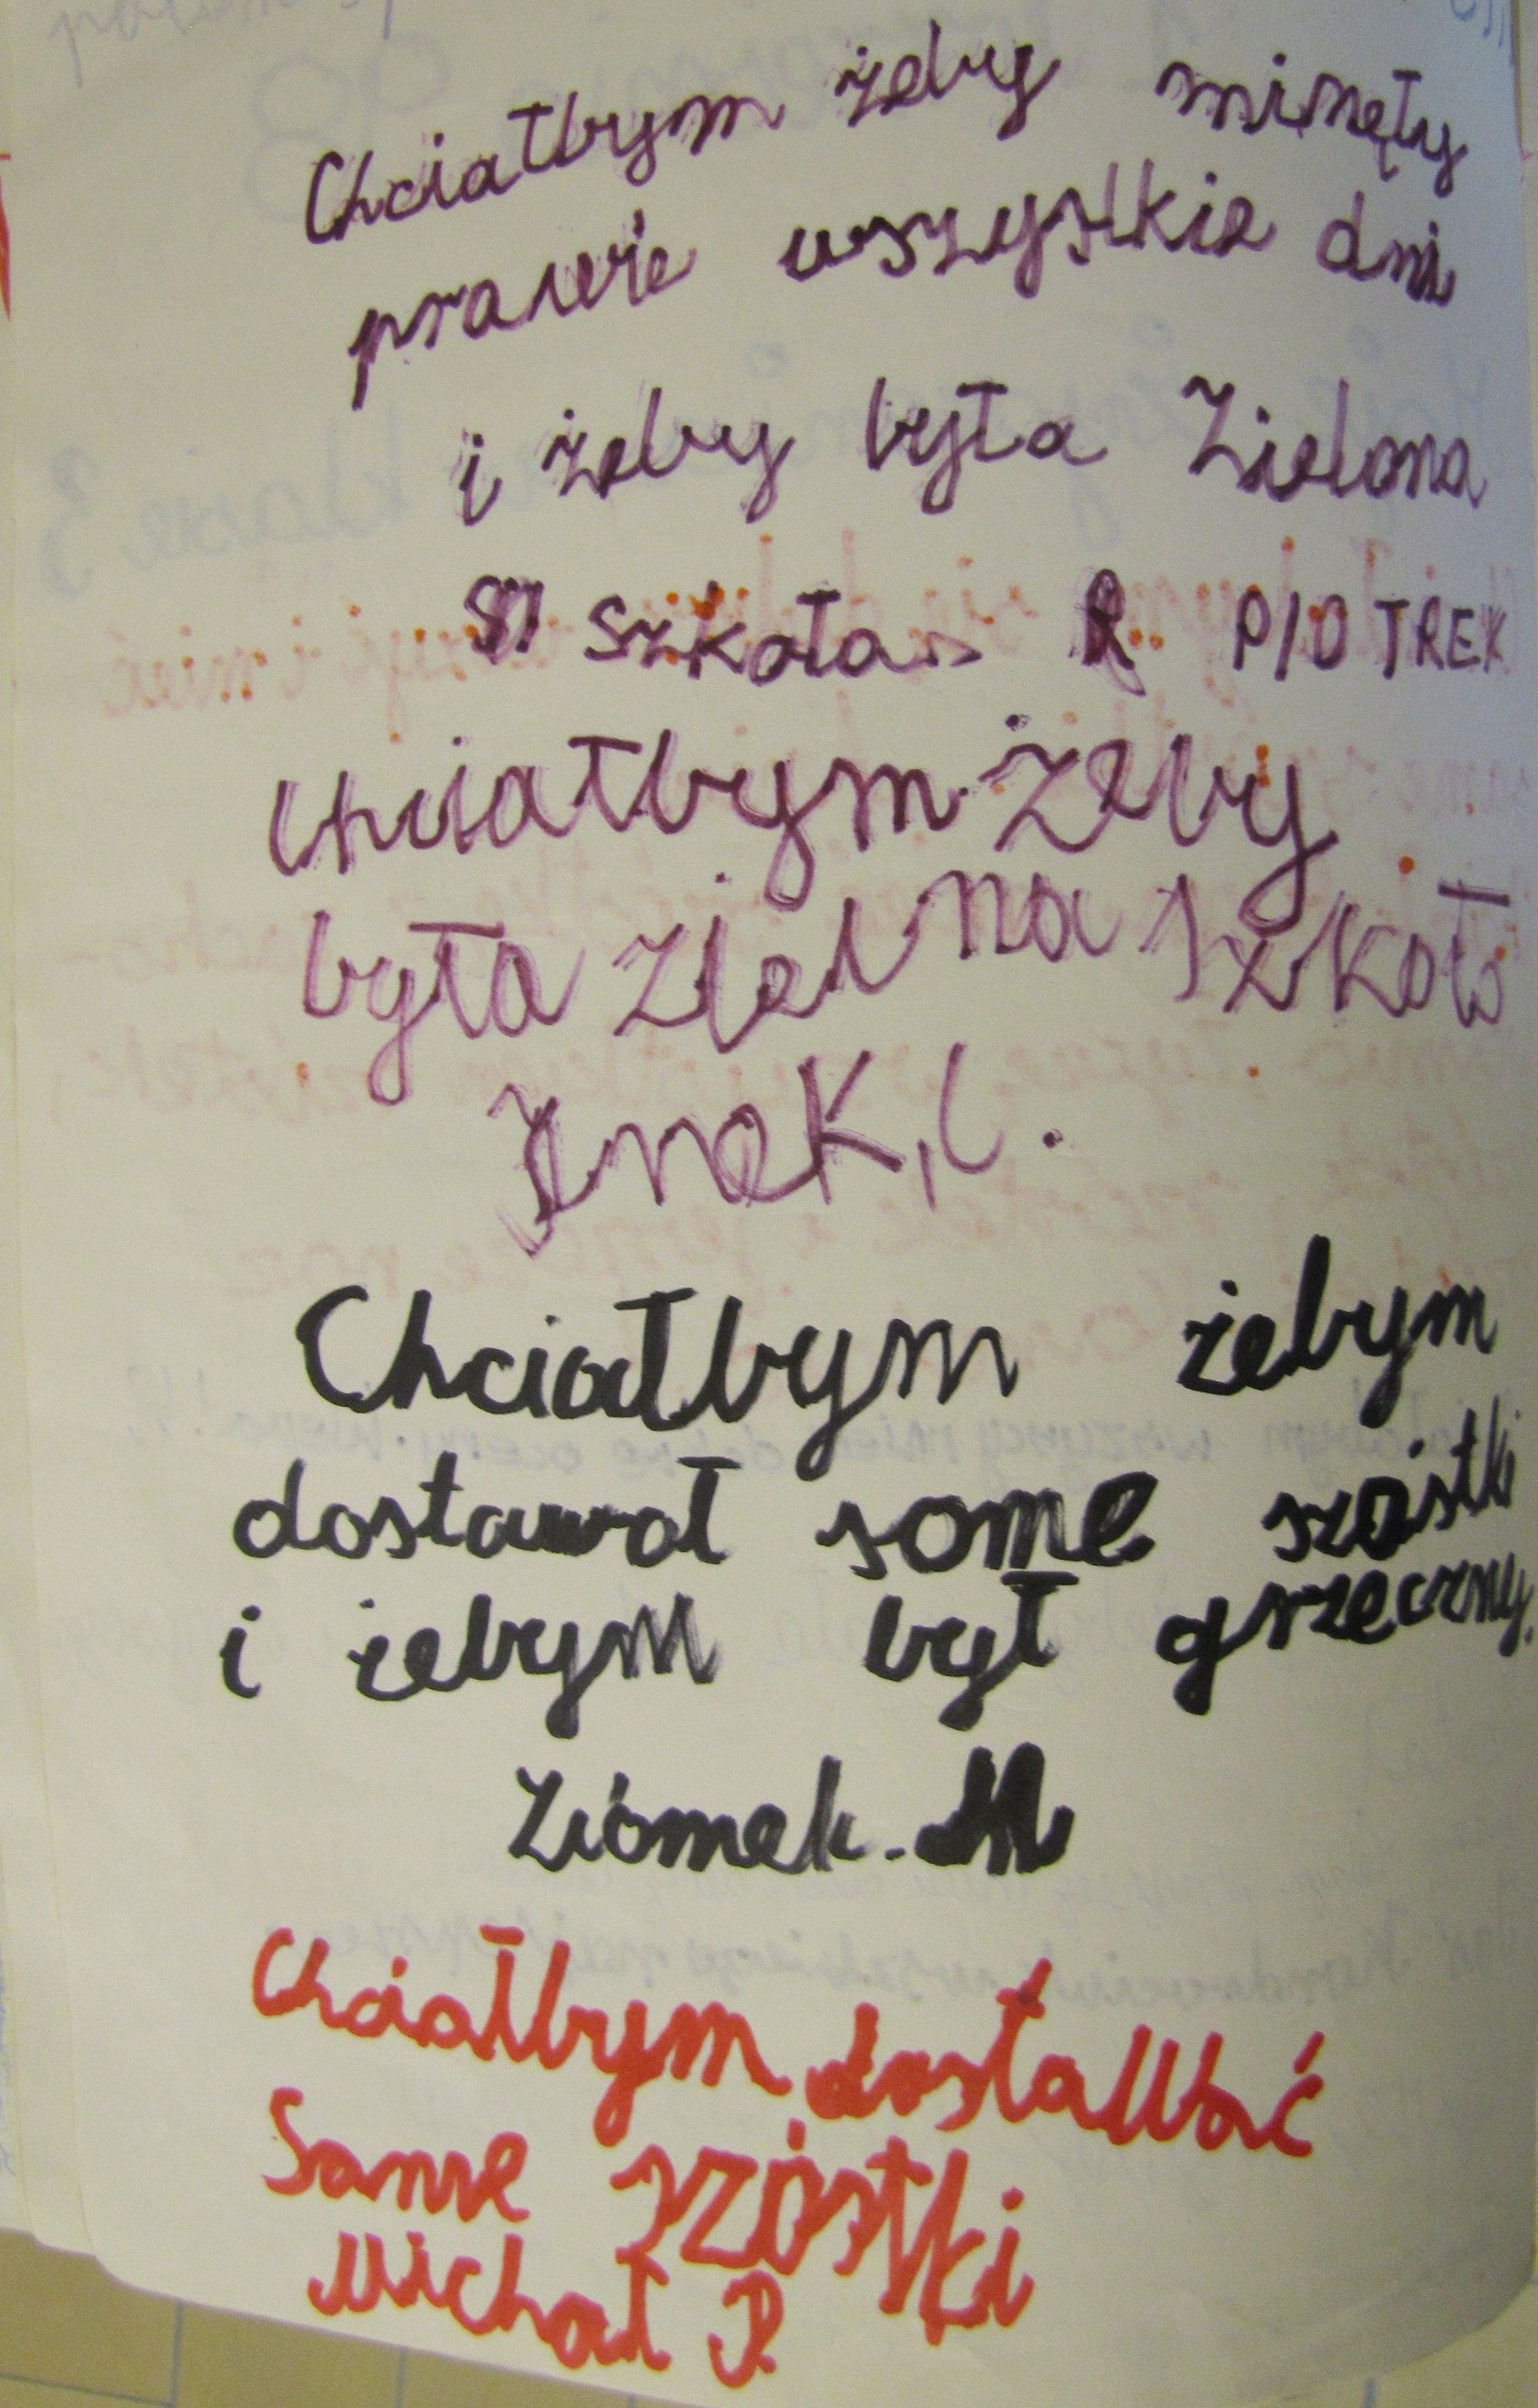 Chciałbym żeby minęły
prawie wszystkie dni
i żeby była Zielona
szkoła. R PIOTREK
chciałbym żeby
była zielona szkoła
Chciałbym żebym
dostawał same szóstki
i żebym był grzeczny.
Ziomek. M
Chciałbym dostawać
Same szóstki
Michał P.